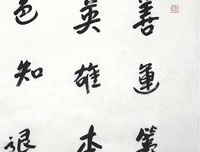 善運籌
英雄本
色知